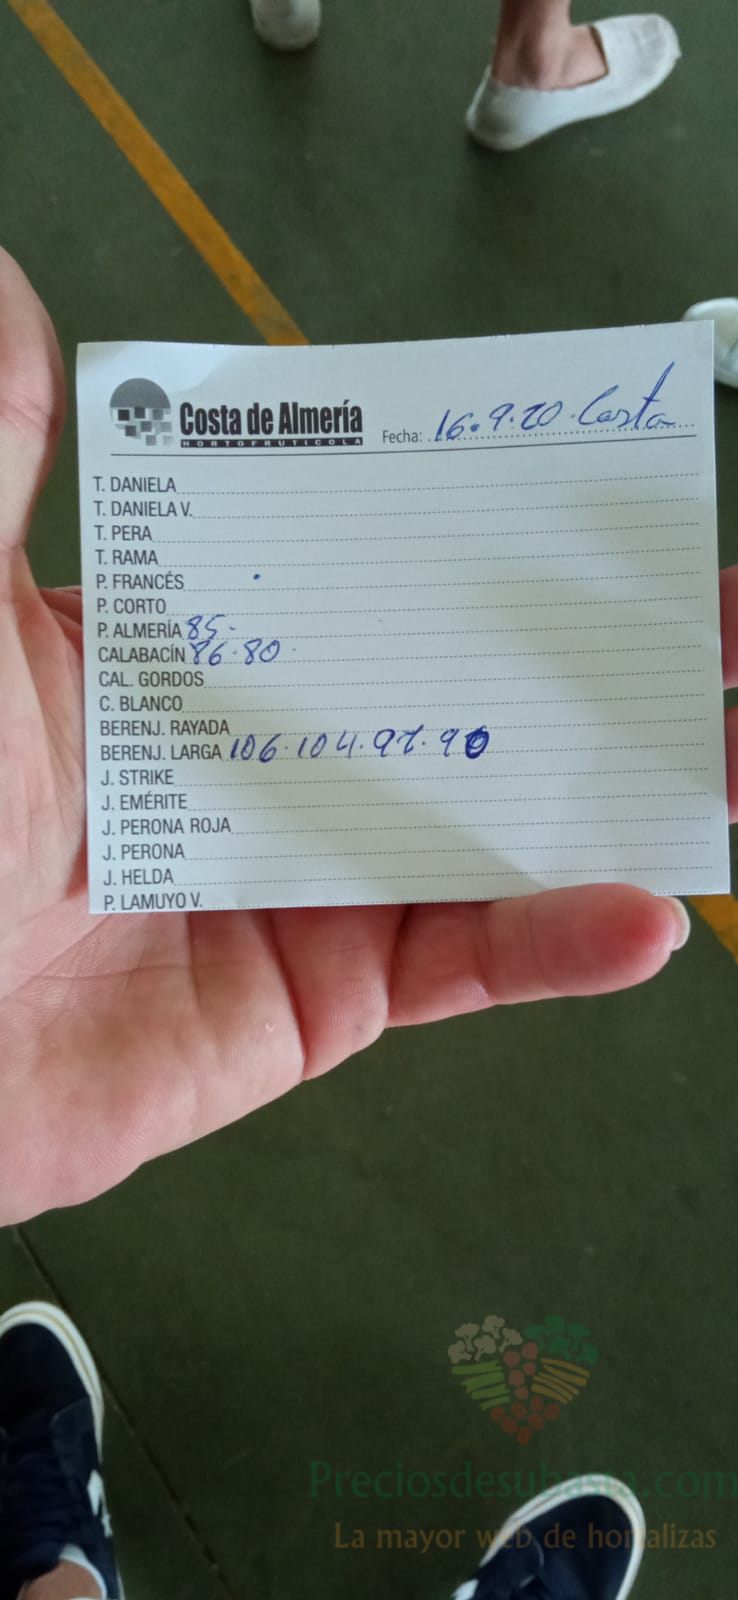 Costa de Almería
HORTOFRUTICOLA
Fecha: 16.9.20. Costa
T. DANIELA
T. DANIELA V.
T. PERA
T. RAMA
P. FRANCÉS
P. CORTO
P. ALMERÍA 85-
CALABACÍN 86.80.
CAL. GORDOS
C. BLANCO
BERENJ. RAYADA
BERENJ. LARGA 106.104.97.90
J. STRIKE
J. EMÉRITE
J. PERONA ROJA
J. PERONA
J. HELDA
P. LAMUYO V.
Preciosdesubasta.com
La mayor web de hortalizas